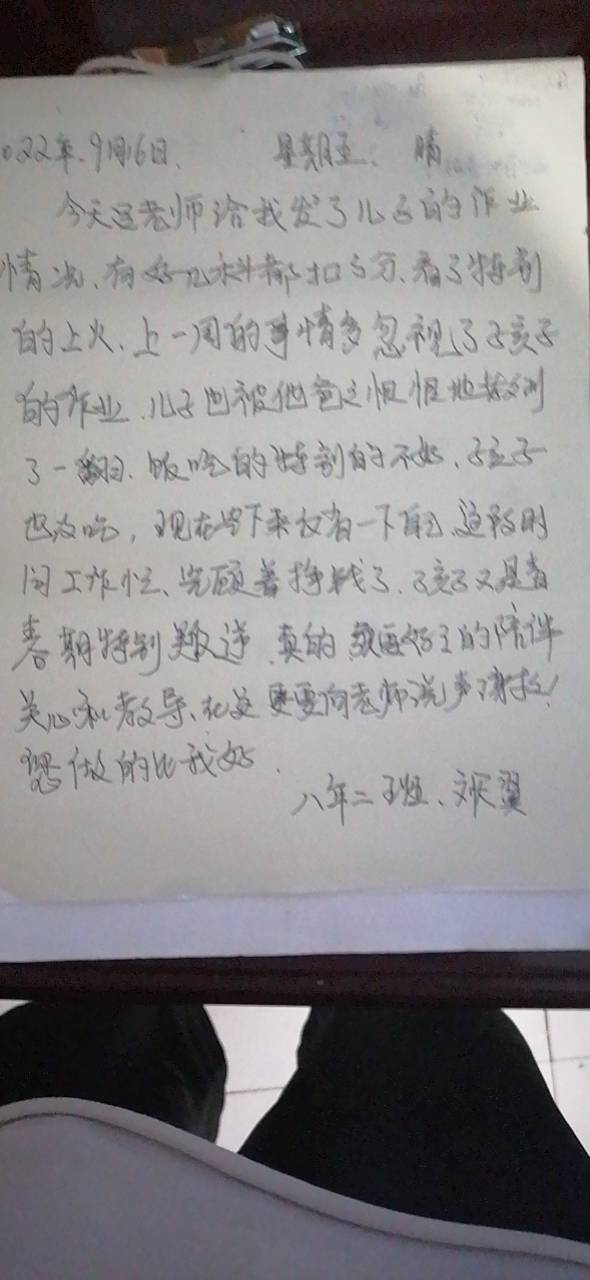 2022年.9月16日. 星期五、 晴
今天这老师给我发了儿子的作业
情况、有好几科都扣了分、看了特别
的上火、上一周的事情多忽视了孩子
的作业、儿子也被他爸爸狠狠地教训
了一翻、饭吃的特别的不好、孩子
也没吃，现在留下来反省一下自己、这段时
间工作忙、光顾着挣钱了、孩子又是青
春期特别叛逆、真的 要好好的陪伴
关心和教导、在这更要向老师说声谢谢！
您做的比我好.
八年二班、